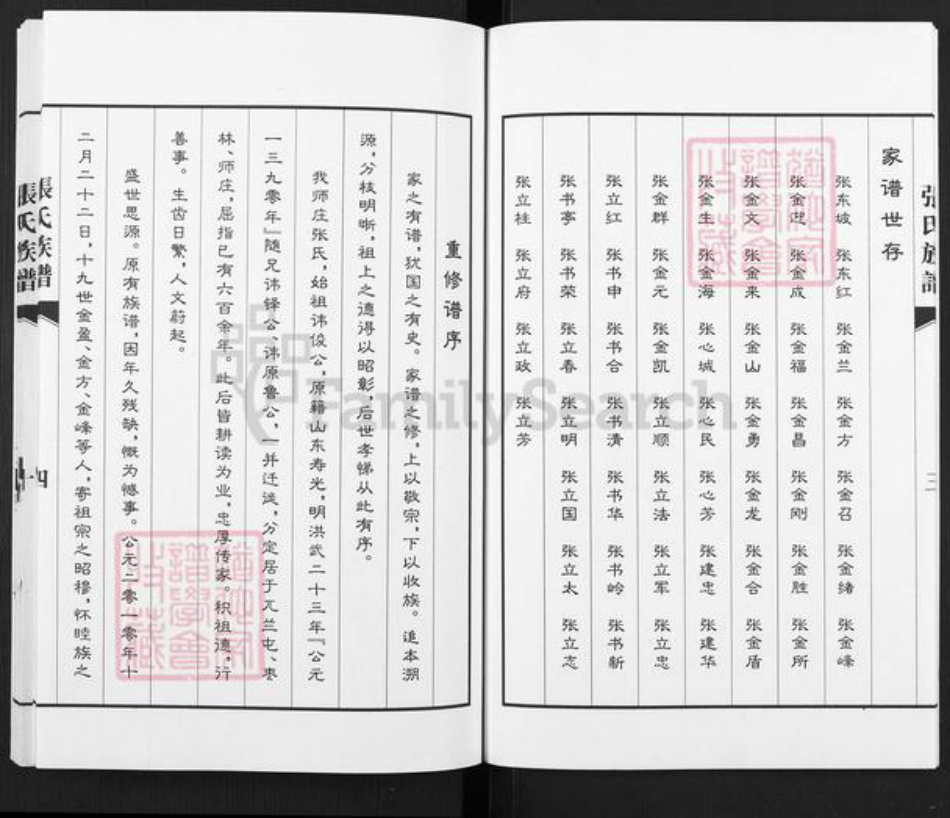 張氏族譜
家谱世存
张东坡 张东红 张金兰 张金方 张金召 张金绪 张金峰
张金成 张金福 张金昌 张金刚 张金胜 张金所
张金文 张金来 张金山 张金勇 张金龙 张金合 张金盾
张金生 张金海 张心城 张心民 张心芳 张建忠 张建华
张金群 张金元 张金凯 张立顺 张立洁 张立军 张立忠
张立红 张书申 张书合 张书清 张书华 张书岭 张书新
张书亭 张书荣 张立春 张立明 张立国 张立太 张立志
张立柱 张立府 张立政 张立芳
三
重修谱序
家之有谱,犹国之有史。家谱之修,上以敬宗,下以收族。追本溯
源,分枝明晰,祖上之德得以昭彰,后世孝悌从此有序。
我师庄张氏,始祖讳俊公,原籍山东寿光,明洪武二十三年『公元
一三九零年』随兄讳铎公、讳原鲁公,一并迁滋,分定居于兀兰屯、枣
林、师庄,屈指已有六百余年。此后皆耕读为业,忠厚传家。积祖德,行
善事。生齿日繁,人文蔚起。
盛世思源。原有族谱,因年久残缺,慨为憾事。公元二零一零年十
二月二十二日,十九世金盈、金方、金峰等人,寄祖宗之昭穆,怀睦族之
張氏族譜
四
FamilySearch